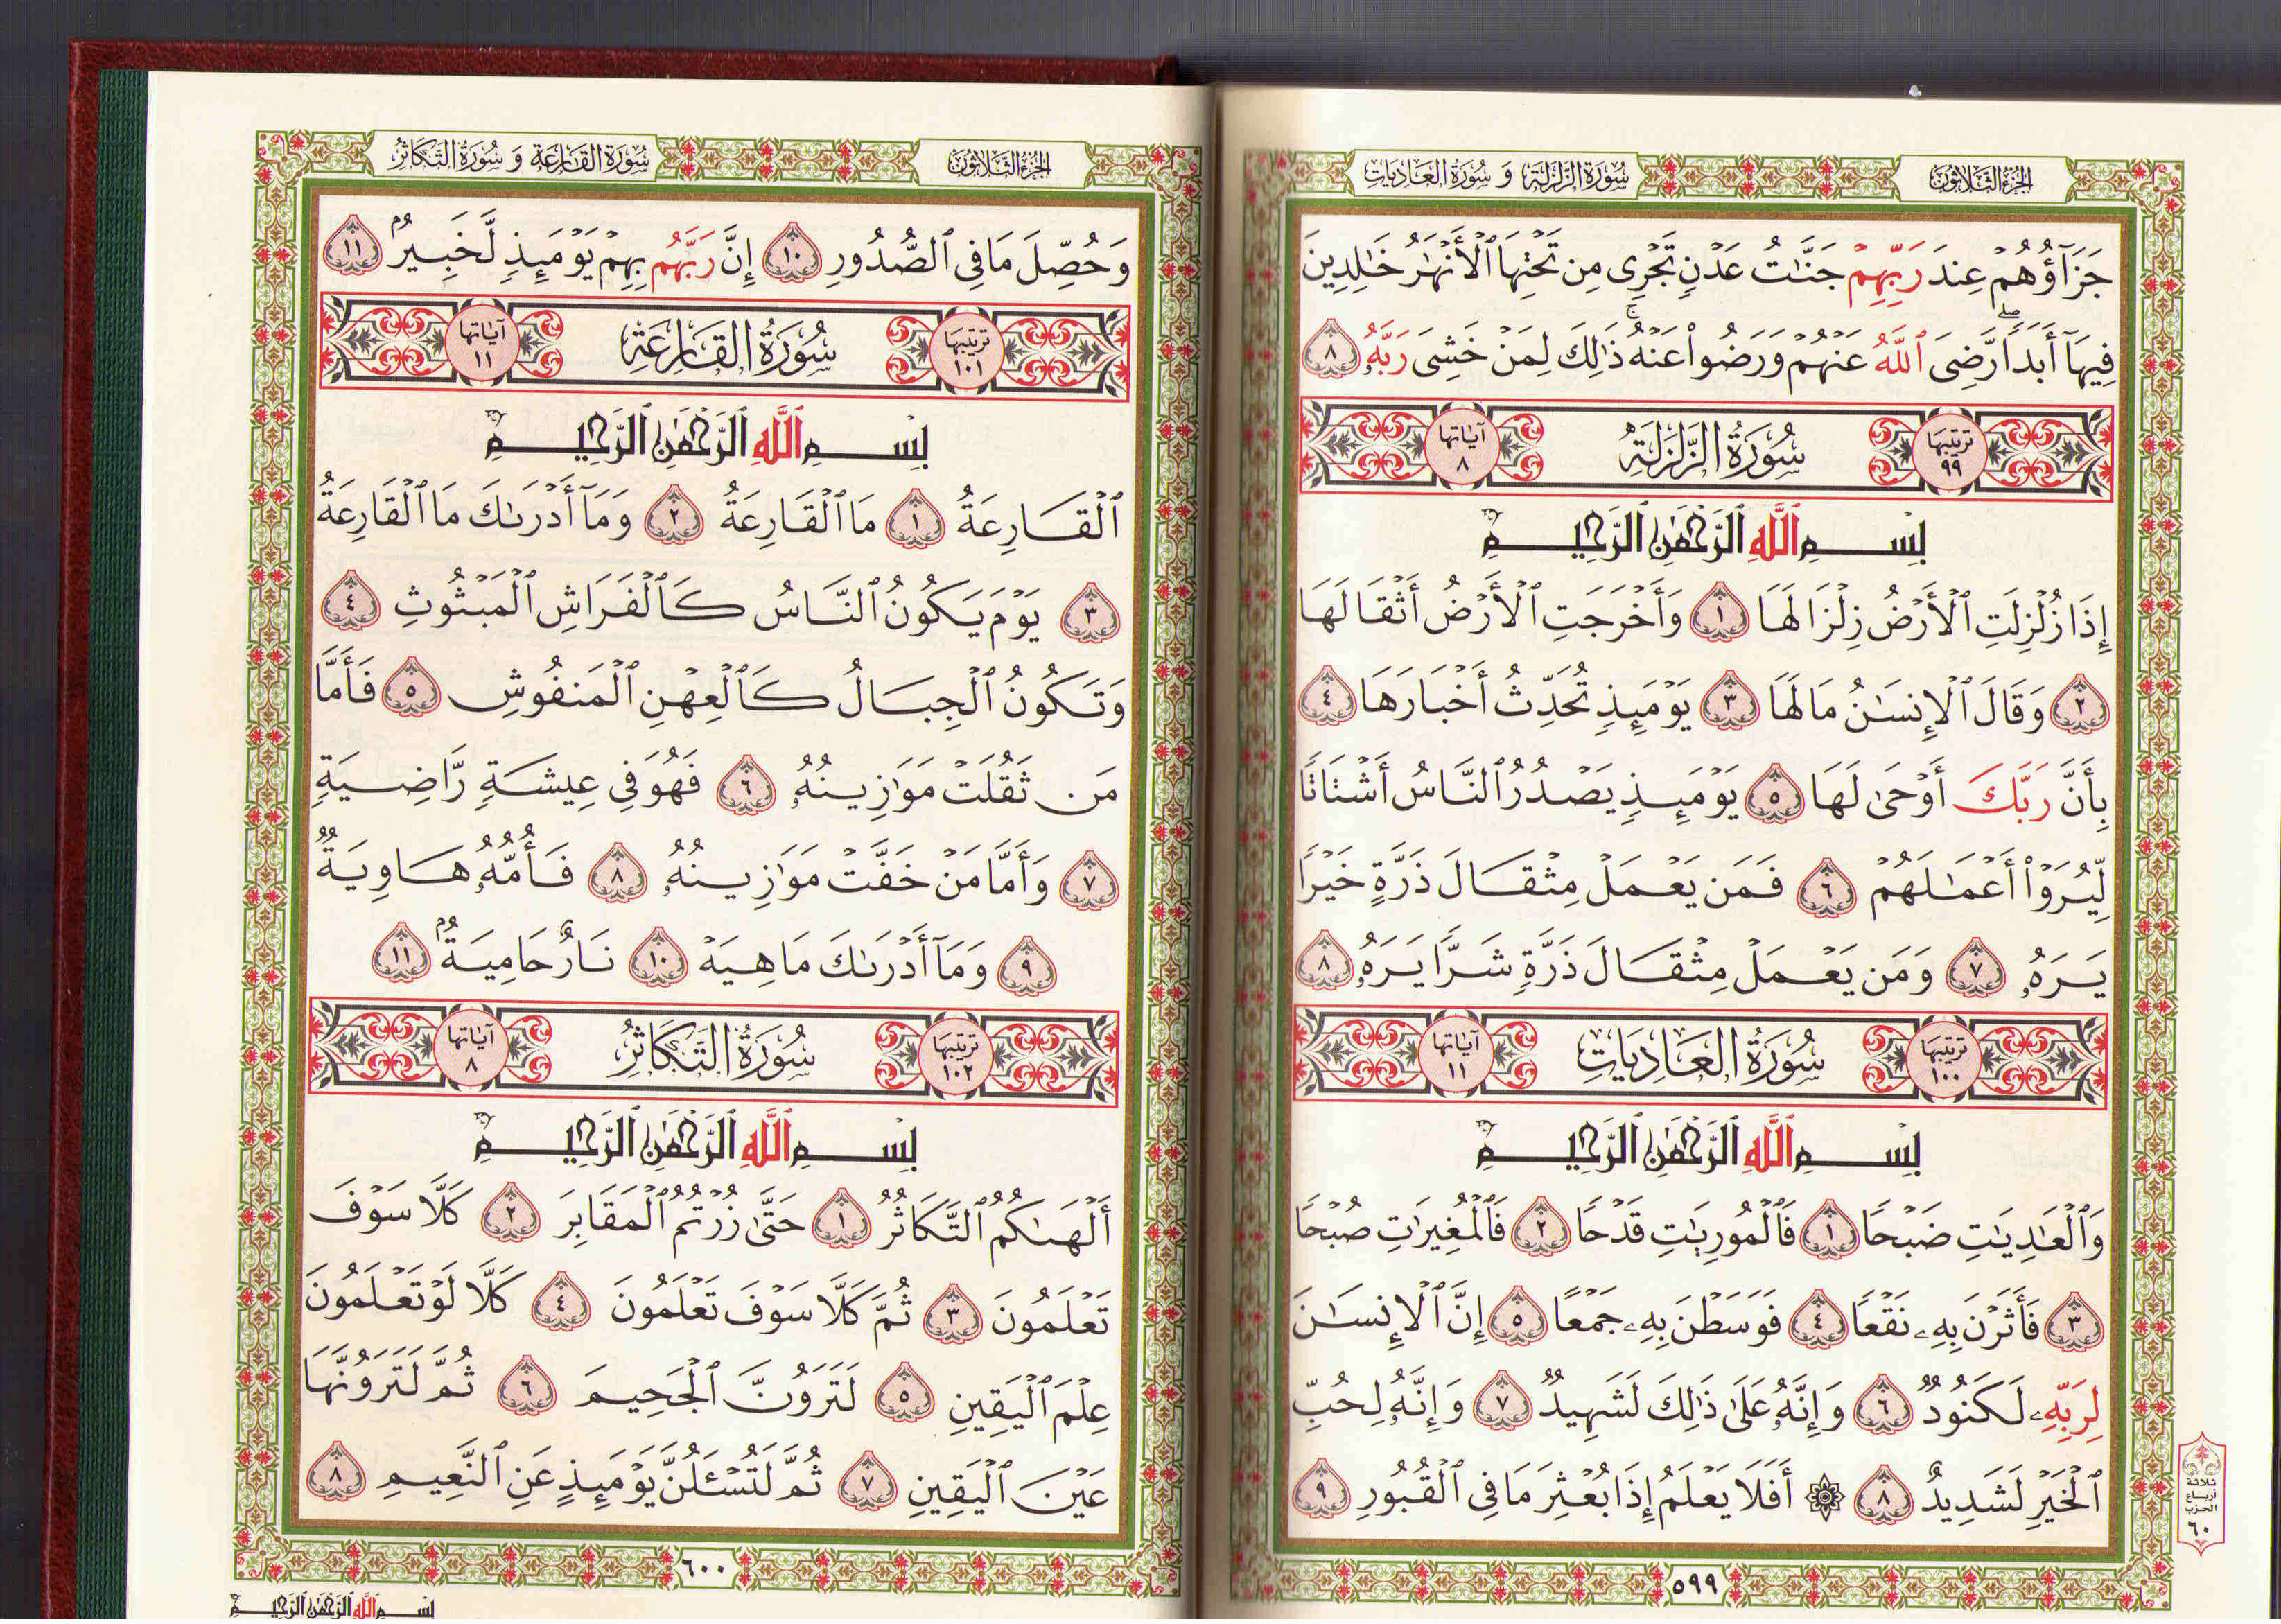 الجزء الثلاثون
سورة الزلزلة و سورة العاديات
جَزَآؤُهُمْ عِندَ رَبِّهِمْ جَنَّٰتُ عَدْنٍ تَجْرِى مِن تَحْتِهَا ٱلْأَنْهَٰرُ خَٰلِدِينَ
فِيهَآ أَبَدًا رَّضِىَ ٱللَّهُ عَنْهُمْ وَرَضُوا۟ عَنْهُ ذَٰلِكَ لِمَنْ خَشِىَ رَبَّهُۥ ٨
ترتيبها ٩٩ سُورَةُ الزَّلْزَلَةِ آياتها ٨
بِسْمِ ٱللَّهِ ٱلرَّحْمَٰنِ ٱلرَّحِيمِ
إِذَا زُلْزِلَتِ ٱلْأَرْضُ زِلْزَالَهَا ١ وَأَخْرَجَتِ ٱلْأَرْضُ أَثْقَالَهَا
٢ وَقَالَ ٱلْإِنسَٰنُ مَا لَهَا ٣ يَوْمَئِذٍ تُحَدِّثُ أَخْبَارَهَا ٤
بِأَنَّ رَبَّكَ أَوْحَىٰ لَهَا ٥ يَوْمَئِذٍ يَصْدُرُ ٱلنَّاسُ أَشْتَاتًا
لِّيُرَوْا۟ أَعْمَٰلَهُمْ ٦ فَمَن يَعْمَلْ مِثْقَالَ ذَرَّةٍ خَيْرًا
يَرَهُۥ ٧ وَمَن يَعْمَلْ مِثْقَالَ ذَرَّةٍ شَرًّا يَرَهُۥ ٨
ترتيبها ١٠٠ سُورَةُ العَادِيَاتِ آياتها ١١
بِسْمِ ٱللَّهِ ٱلرَّحْمَٰنِ ٱلرَّحِيمِ
وَٱلْعَٰدِيَٰتِ ضَبْحًا ١ فَٱلْمُورِيَٰتِ قَدْحًا ٢ فَٱلْمُغِيرَٰتِ صُبْحًا
٣ فَأَثَرْنَ بِهِۦ نَقْعًا ٤ فَوَسَطْنَ بِهِۦ جَمْعًا ٥ إِنَّ ٱلْإِنسَٰنَ
لِرَبِّهِۦ لَكَنُودٌ ٦ وَإِنَّهُۥ عَلَىٰ ذَٰلِكَ لَشَهِيدٌ ٧ وَإِنَّهُۥ لِحُبِّ
ٱلْخَيْرِ لَشَدِيدٌ ٨ ۞ أَفَلَا يَعْلَمُ إِذَا بُعْثِرَ مَا فِى ٱلْقُبُورِ ٩
ثلاثة
أرباع
الحزب
٦٠
٥٩٩
الجزء الثلاثون
سورة القارعة و سورة التكاثر
وَحُصِّلَ مَا فِى ٱلصُّدُورِ ١٠ إِنَّ رَبَّهُم بِهِمْ يَوْمَئِذٍ لَّخَبِيرٌۢ ١١
ترتيبها ١٠١ سُورَةُ القَارِعَةِ آياتها ١١
بِسْمِ ٱللَّهِ ٱلرَّحْمَٰنِ ٱلرَّحِيمِ
ٱلْقَارِعَةُ ١ مَا ٱلْقَارِعَةُ ٢ وَمَآ أَدْرَىٰكَ مَا ٱلْقَارِعَةُ
٣ يَوْمَ يَكُونُ ٱلنَّاسُ كَٱلْفَرَاشِ ٱلْمَبْثُوثِ ٤
وَتَكُونُ ٱلْجِبَالُ كَٱلْعِهْنِ ٱلْمَنفُوشِ ٥ فَأَمَّا
مَن ثَقُلَتْ مَوَٰزِينُهُۥ ٦ فَهُوَ فِى عِيشَةٍ رَّاضِيَةٍ
٧ وَأَمَّا مَنْ خَفَّتْ مَوَٰزِينُهُۥ ٨ فَأُمُّهُۥ هَاوِيَةٌ
٩ وَمَآ أَدْرَىٰكَ مَا هِيَهْ ١٠ نَارٌ حَامِيَةٌۢ ١١
ترتيبها ١٠٢ سُورَةُ التَّكَاثُرِ آياتها ٨
بِسْمِ ٱللَّهِ ٱلرَّحْمَٰنِ ٱلرَّحِيمِ
أَلْهَىٰكُمُ ٱلتَّكَاثُرُ ١ حَتَّىٰ زُرْتُمُ ٱلْمَقَابِرَ ٢ كَلَّا سَوْفَ
تَعْلَمُونَ ٣ ثُمَّ كَلَّا سَوْفَ تَعْلَمُونَ ٤ كَلَّا لَوْ تَعْلَمُونَ
عِلْمَ ٱلْيَقِينِ ٥ لَتَرَوُنَّ ٱلْجَحِيمَ ٦ ثُمَّ لَتَرَوُنَّهَا
عَيْنَ ٱلْيَقِينِ ٧ ثُمَّ لَتُسْـَٔلُنَّ يَوْمَئِذٍ عَنِ ٱلنَّعِيمِ ٨
٦٠٠
بِسْمِ ٱللَّهِ ٱلرَّحْمَٰنِ ٱلرَّحِيمِ